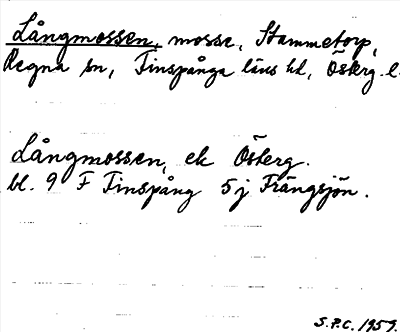 Långmossen, mosse, Stammetorp,
Regna sn, Finspånga läns hd, Österg. l.
Långmossen, ek Österg.
bl. 9 F Finspång 5j Frängsjön.
S.P.C. 1959.